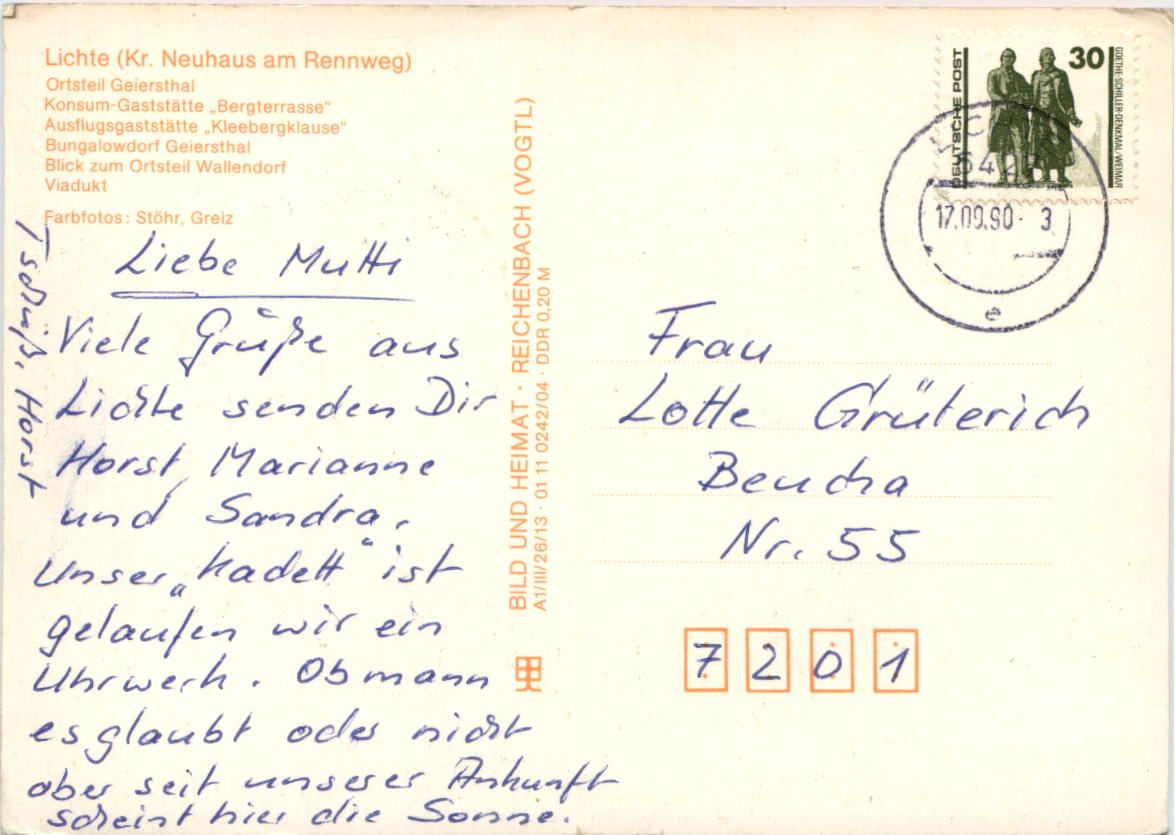 Lichte (Kr. Neuhaus am Rennweg)
Ortsteil Geiersthal
Konsum-Gaststätte „Bergterrasse"
Ausflugsgaststätte „Kleebergklause"
Bungalowdorf Geiersthal
Blick zum Ortsteil Wallendorf
Viadukt
Farbfotos: Stöhr, Greiz
Liebe Mutti
Viele Grüße aus
Lichte senden Dir
Horst, Marianne
und Sandra.
Unser „Kadett" ist
gelaufen wir ein
Uhrwerk. Ob mann
es glaubt oder nicht
aber seit unserer Ankunft
scheint hier die Sonne.
Tschüß, Horst
BILD UND HEIMAT · REICHENBACH (VOGTL)
A1/III/26/13 · 01 11 0242/04 · DDR 0,20 M
DEUTSCHE POST
30
GOETHE-SCHILLER-DENKMAL/WEIMAR
17.09.90- 3
e
Frau
Lotte Grüterich
Beucha
Nr. 55
7201